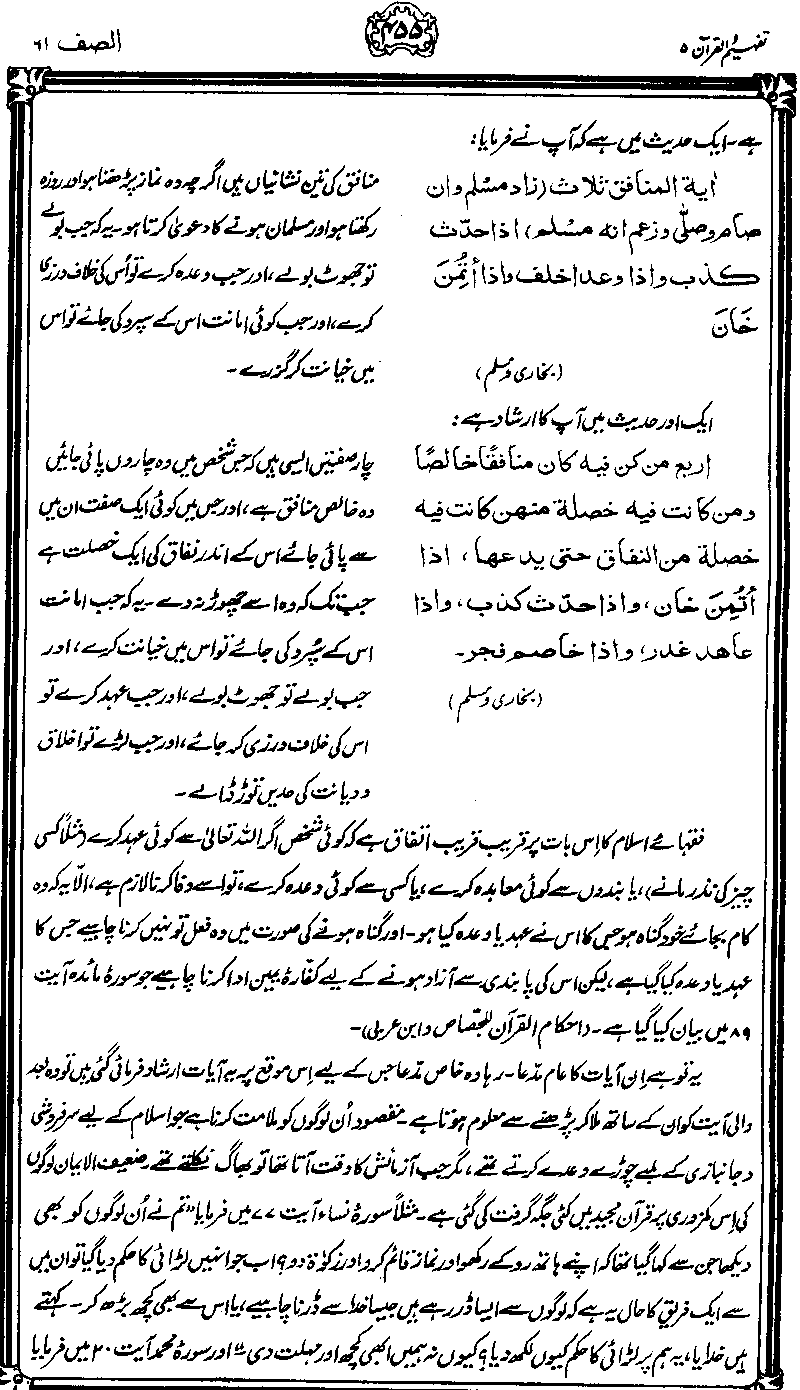 تفہیم القرآن ۵
۴۵۵
الصف ۶۱
ہے۔ ایک حدیث میں ہے کہ آپ نے فرمایا:
اٰیة المنافق ثلاث (زاد مسلم وان
صام وصلّی وزعم انه مسلم) اذا حدّث
کذب واذا وعد اخلف واذا أتُمِنَ
خَانَ
(بخاری و مسلم)
منافق کی تین نشانیاں ہیں اگرچہ وہ نماز پڑھتا ہو اور روزہ
رکھتا ہو اور مسلمان ہونے کا دعویٰ کرتا ہو۔ یہ کہ جب بولے
تو جھوٹ بولے، اور جب وعدہ کرے تو اُس کی خلاف ورزی
کرے، اور جب کوئی امانت اس کے سپرد کی جائے تو اس
میں خیانت کر گزرے۔
ایک اور حدیث میں آپ کا ارشاد ہے:
اربع من کن فیه کان منافقًا خالصًا
ومن کانت فیه خصلة منهن کانت فیه
خصلة من النفاق حتی یدعها، اذا
أتُمِنَ خان، واذا حدّث کذب، واذا
عاهد غدر، واذا خاصم فجر۔
(بخاری و مسلم)
چار صفتیں ایسی ہیں کہ جس شخص میں وہ چاروں پائی جائیں
وہ خالص منافق ہے، اور جس میں کوئی ایک صفت ان میں
سے پائی جائے اس کے اندر نفاق کی ایک خصلت ہے
جب تک کہ وہ اسے چھوڑ نہ دے۔ یہ کہ جب امانت
اس کے سپرد کی جائے تو اس میں خیانت کرے، اور
جب بولے تو جھوٹ بولے، اور جب عہد کرے تو
اس کی خلاف ورزی کر جائے، اور جب لڑے تو اخلاق
و دیانت کی حدیں توڑ ڈالے۔
فقہائے اسلام کا اِس بات پر قریب قریب اتفاق ہے کہ کوئی شخص اگر اللہ تعالیٰ سے کوئی عہد کرے (مثلاً کسی
چیز کی نذر مانے)، یا بندوں سے کوئی معاہدہ کرے، یا کسی سے کوئی وعدہ کرے، تو اسے وفا کرنا لازم ہے، الّا یہ کہ وہ
کام بجائے خود گناہ ہو جس کا اس نے عہد یا وعدہ کیا ہو۔ اور گناہ ہونے کی صورت میں وہ فعل تو نہیں کرنا چاہیے جس کا
عہد یا وعدہ کیا گیا ہے، لیکن اس کی پابندی سے آزاد ہونے کے لیے کفّارۂ یمین ادا کرنا چاہیے جو سورۂ مائدہ آیت
۸۹ میں بیان کیا گیا ہے۔ (احکام القرآن للجصاص و ابن عربی)۔
یہ تو ہے اِن آیات کا عام مدّعا۔ رہا وہ خاص مدّعا جس کے لیے اِس موقع پر یہ آیات ارشاد فرمائی گئی ہیں تو وہ بعد
والی آیت کو ان کے ساتھ ملا کر پڑھنے سے معلوم ہوتا ہے۔ مقصود اُن لوگوں کو ملامت کرنا ہے جو اسلام کے لیے سرفروشی
و جانبازی کے لمبے چوڑے وعدے کرتے تھے، مگر جب آزمائش کا وقت آتا تھا تو بھاگ نکلتے تھے۔ ضعیف الایمان لوگوں
کی اِس کمزوری پر قرآن مجید میں کئی جگہ گرفت کی گئی ہے۔ مثلاً سورۂ نساء آیت ۷۷ میں فرمایا "تم نے اُن لوگوں کو بھی
دیکھا جن سے کہا گیا تھا کہ اپنے ہاتھ روکے رکھو اور نماز قائم کرو اور زکوٰۃ دو؟ اب جو انہیں لڑائی کا حکم دیا گیا تو ان میں
سے ایک فریق کا حال یہ ہے کہ لوگوں سے ایسا ڈر رہے ہیں جیسا خدا سے ڈرنا چاہیے، یا اس سے بھی کچھ بڑھ کر۔ کہتے
ہیں خدایا، یہ ہم پر لڑائی کا حکم کیوں لکھ دیا؟ کیوں نہ ہمیں ابھی کچھ اور مہلت دی" اور سورۂ محمد آیت ۲۰ میں فرمایا